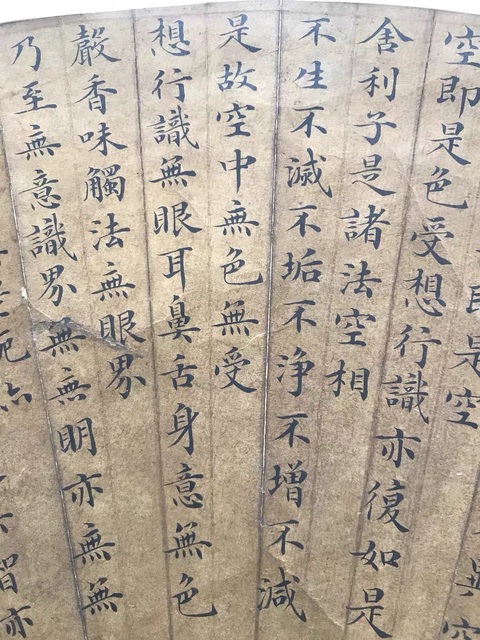 是空
空即是色受想行識亦復如是
舍利子是諸法空相
不生不滅不垢不净不增不減
是故空中無色無受
想行識無眼耳鼻舌身意無色
嚴香味觸法無眼界
乃至無意識界無無明亦無無
智亦